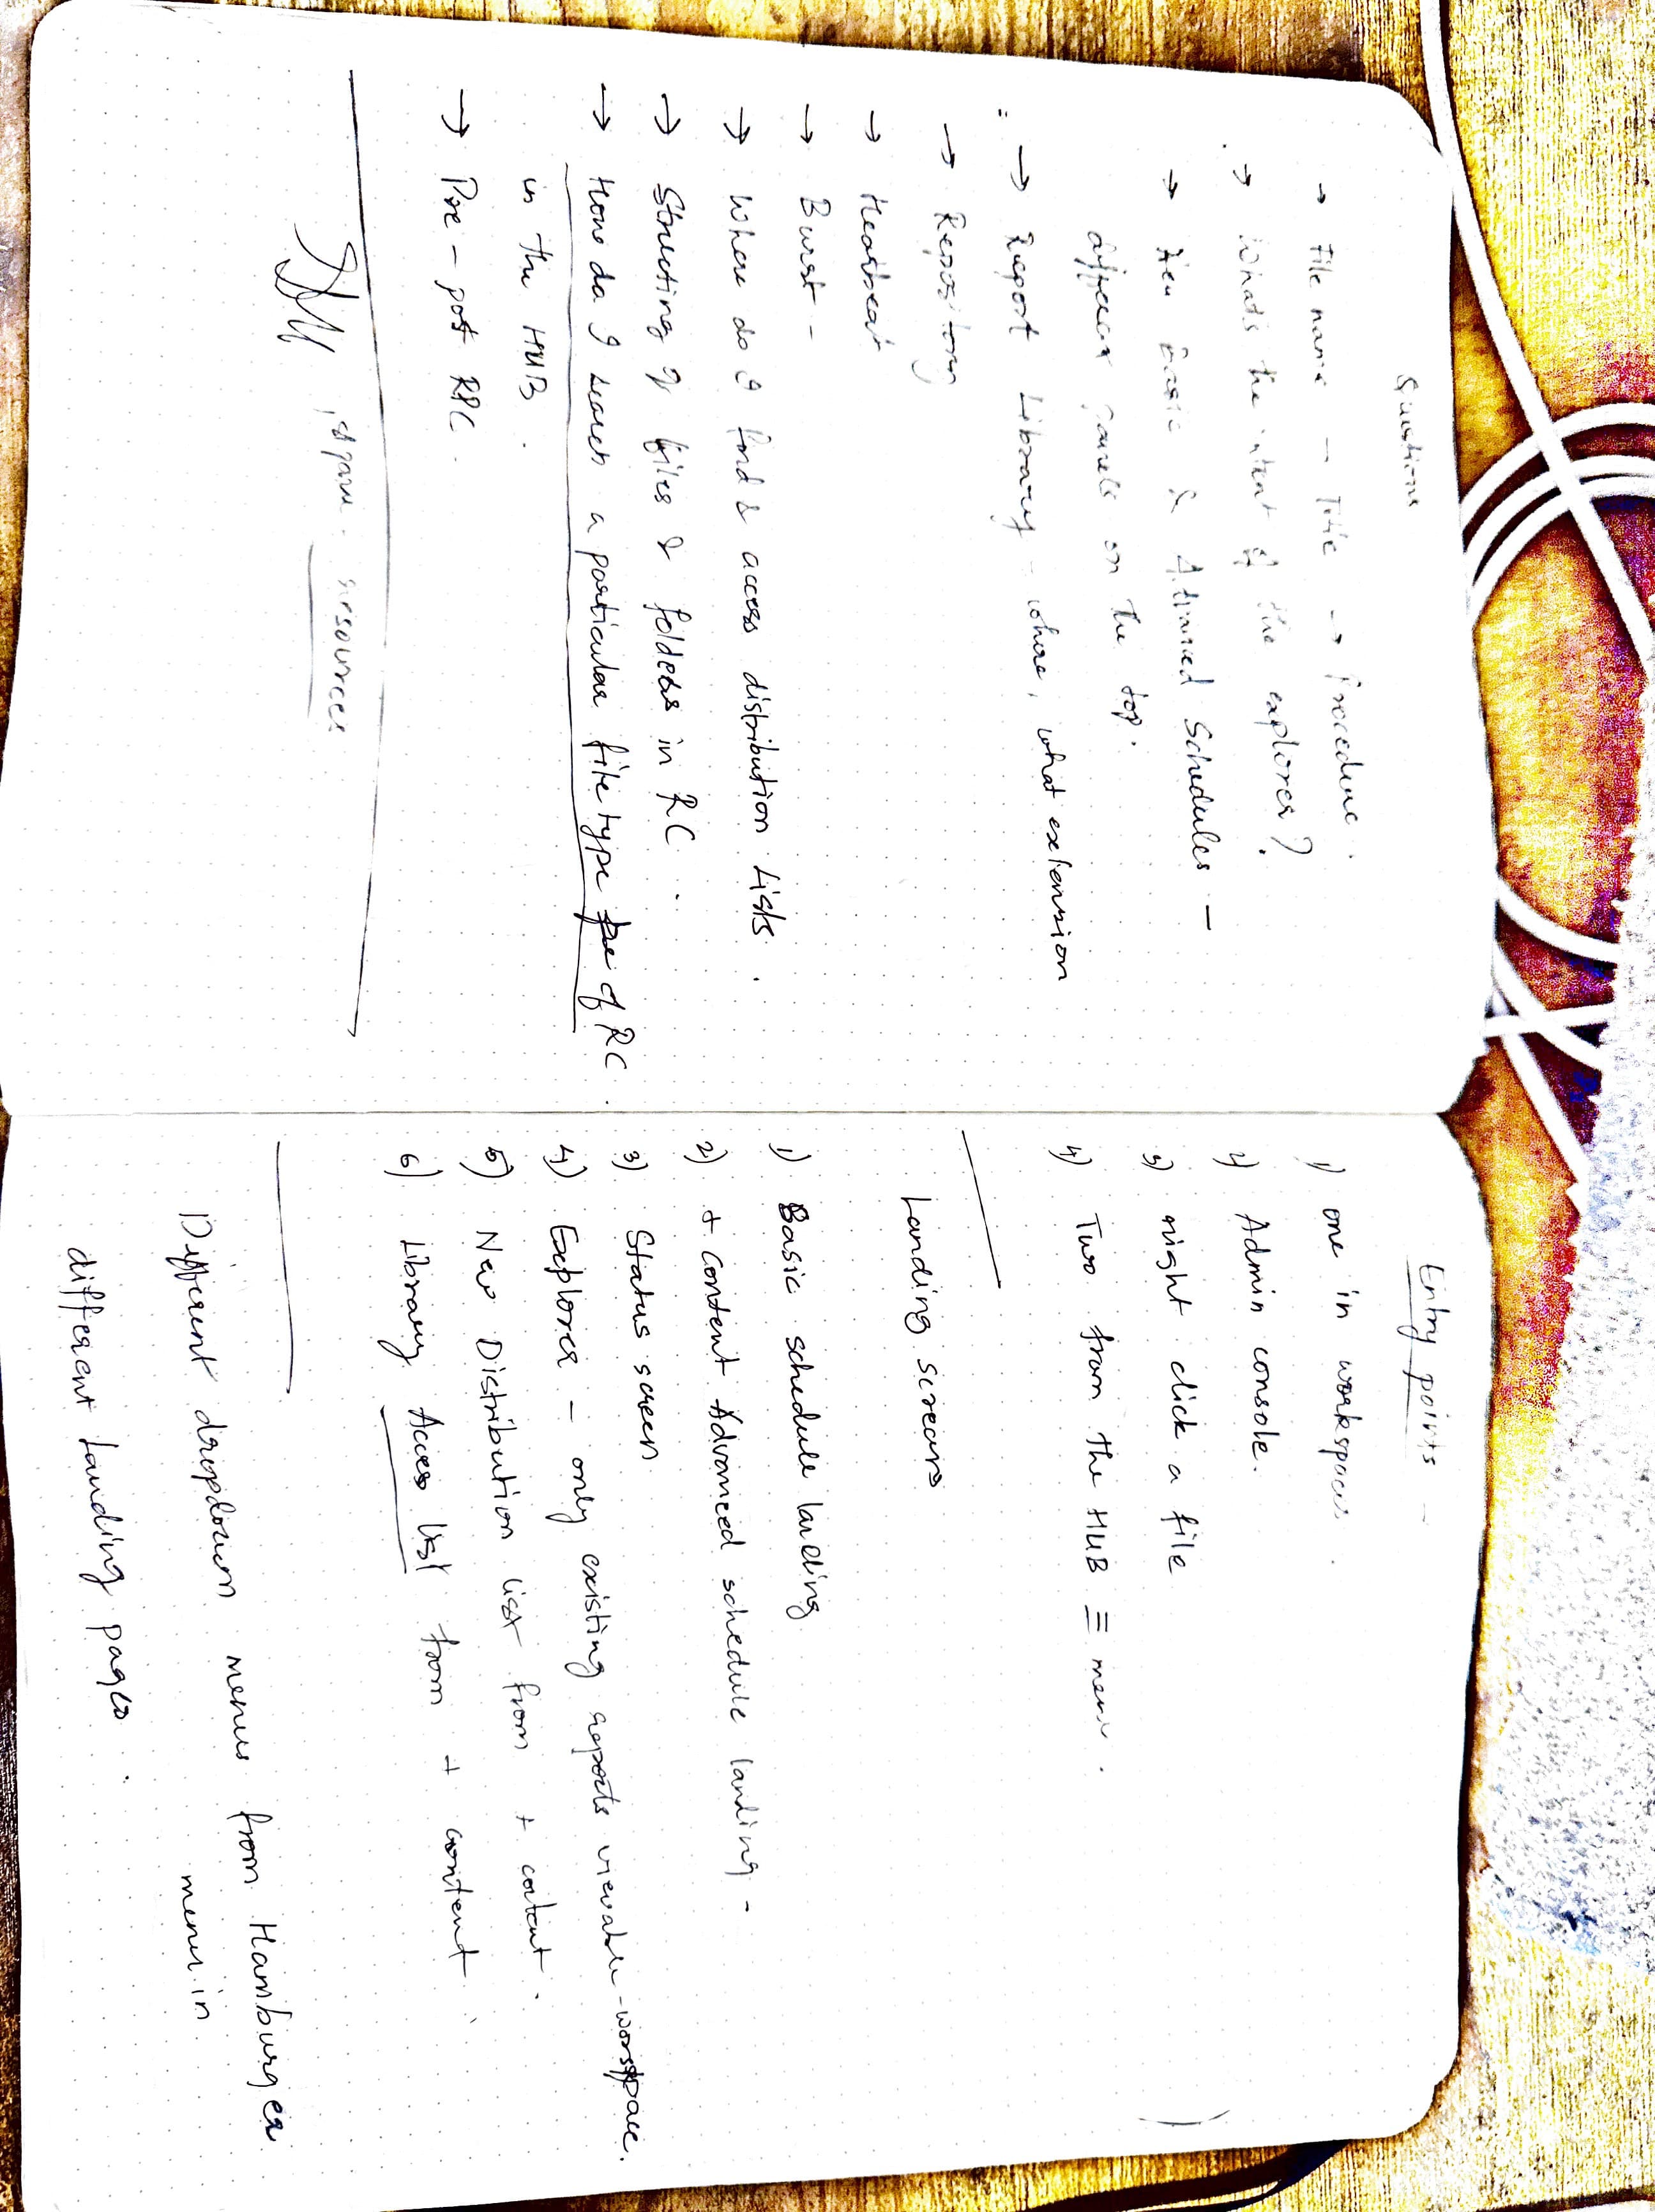 Questions
→ File name - Title → Procedure.
→ Whats the intent of the explorer?
→ Basic & Advanced Schedules -
different panels on the top.
→ Report Library - where, what extension
→ Repository
→ Heartbeat
→ Burst -
→ Where do I find & access distribution Lists.
→ Structing of files & folders in RC.
→ How do I search a particular file type of RC
in the HUB.
→ Pre - post RPC.
resources
Entry points -
1) one in workspaces.
2) Admin console.
3) right click a file
4) Two from the HUB ≡ menu.
Landing screens
1) Basic schedule landing
2) + content Advanced schedule landing -
3) Status screen
4) Explorer - only existing reports viewable - workspace.
5) New Distribution list from + content.
6) Library Access list from + content
Different dropdown menus from Hamburger
menu in
different landing pages.